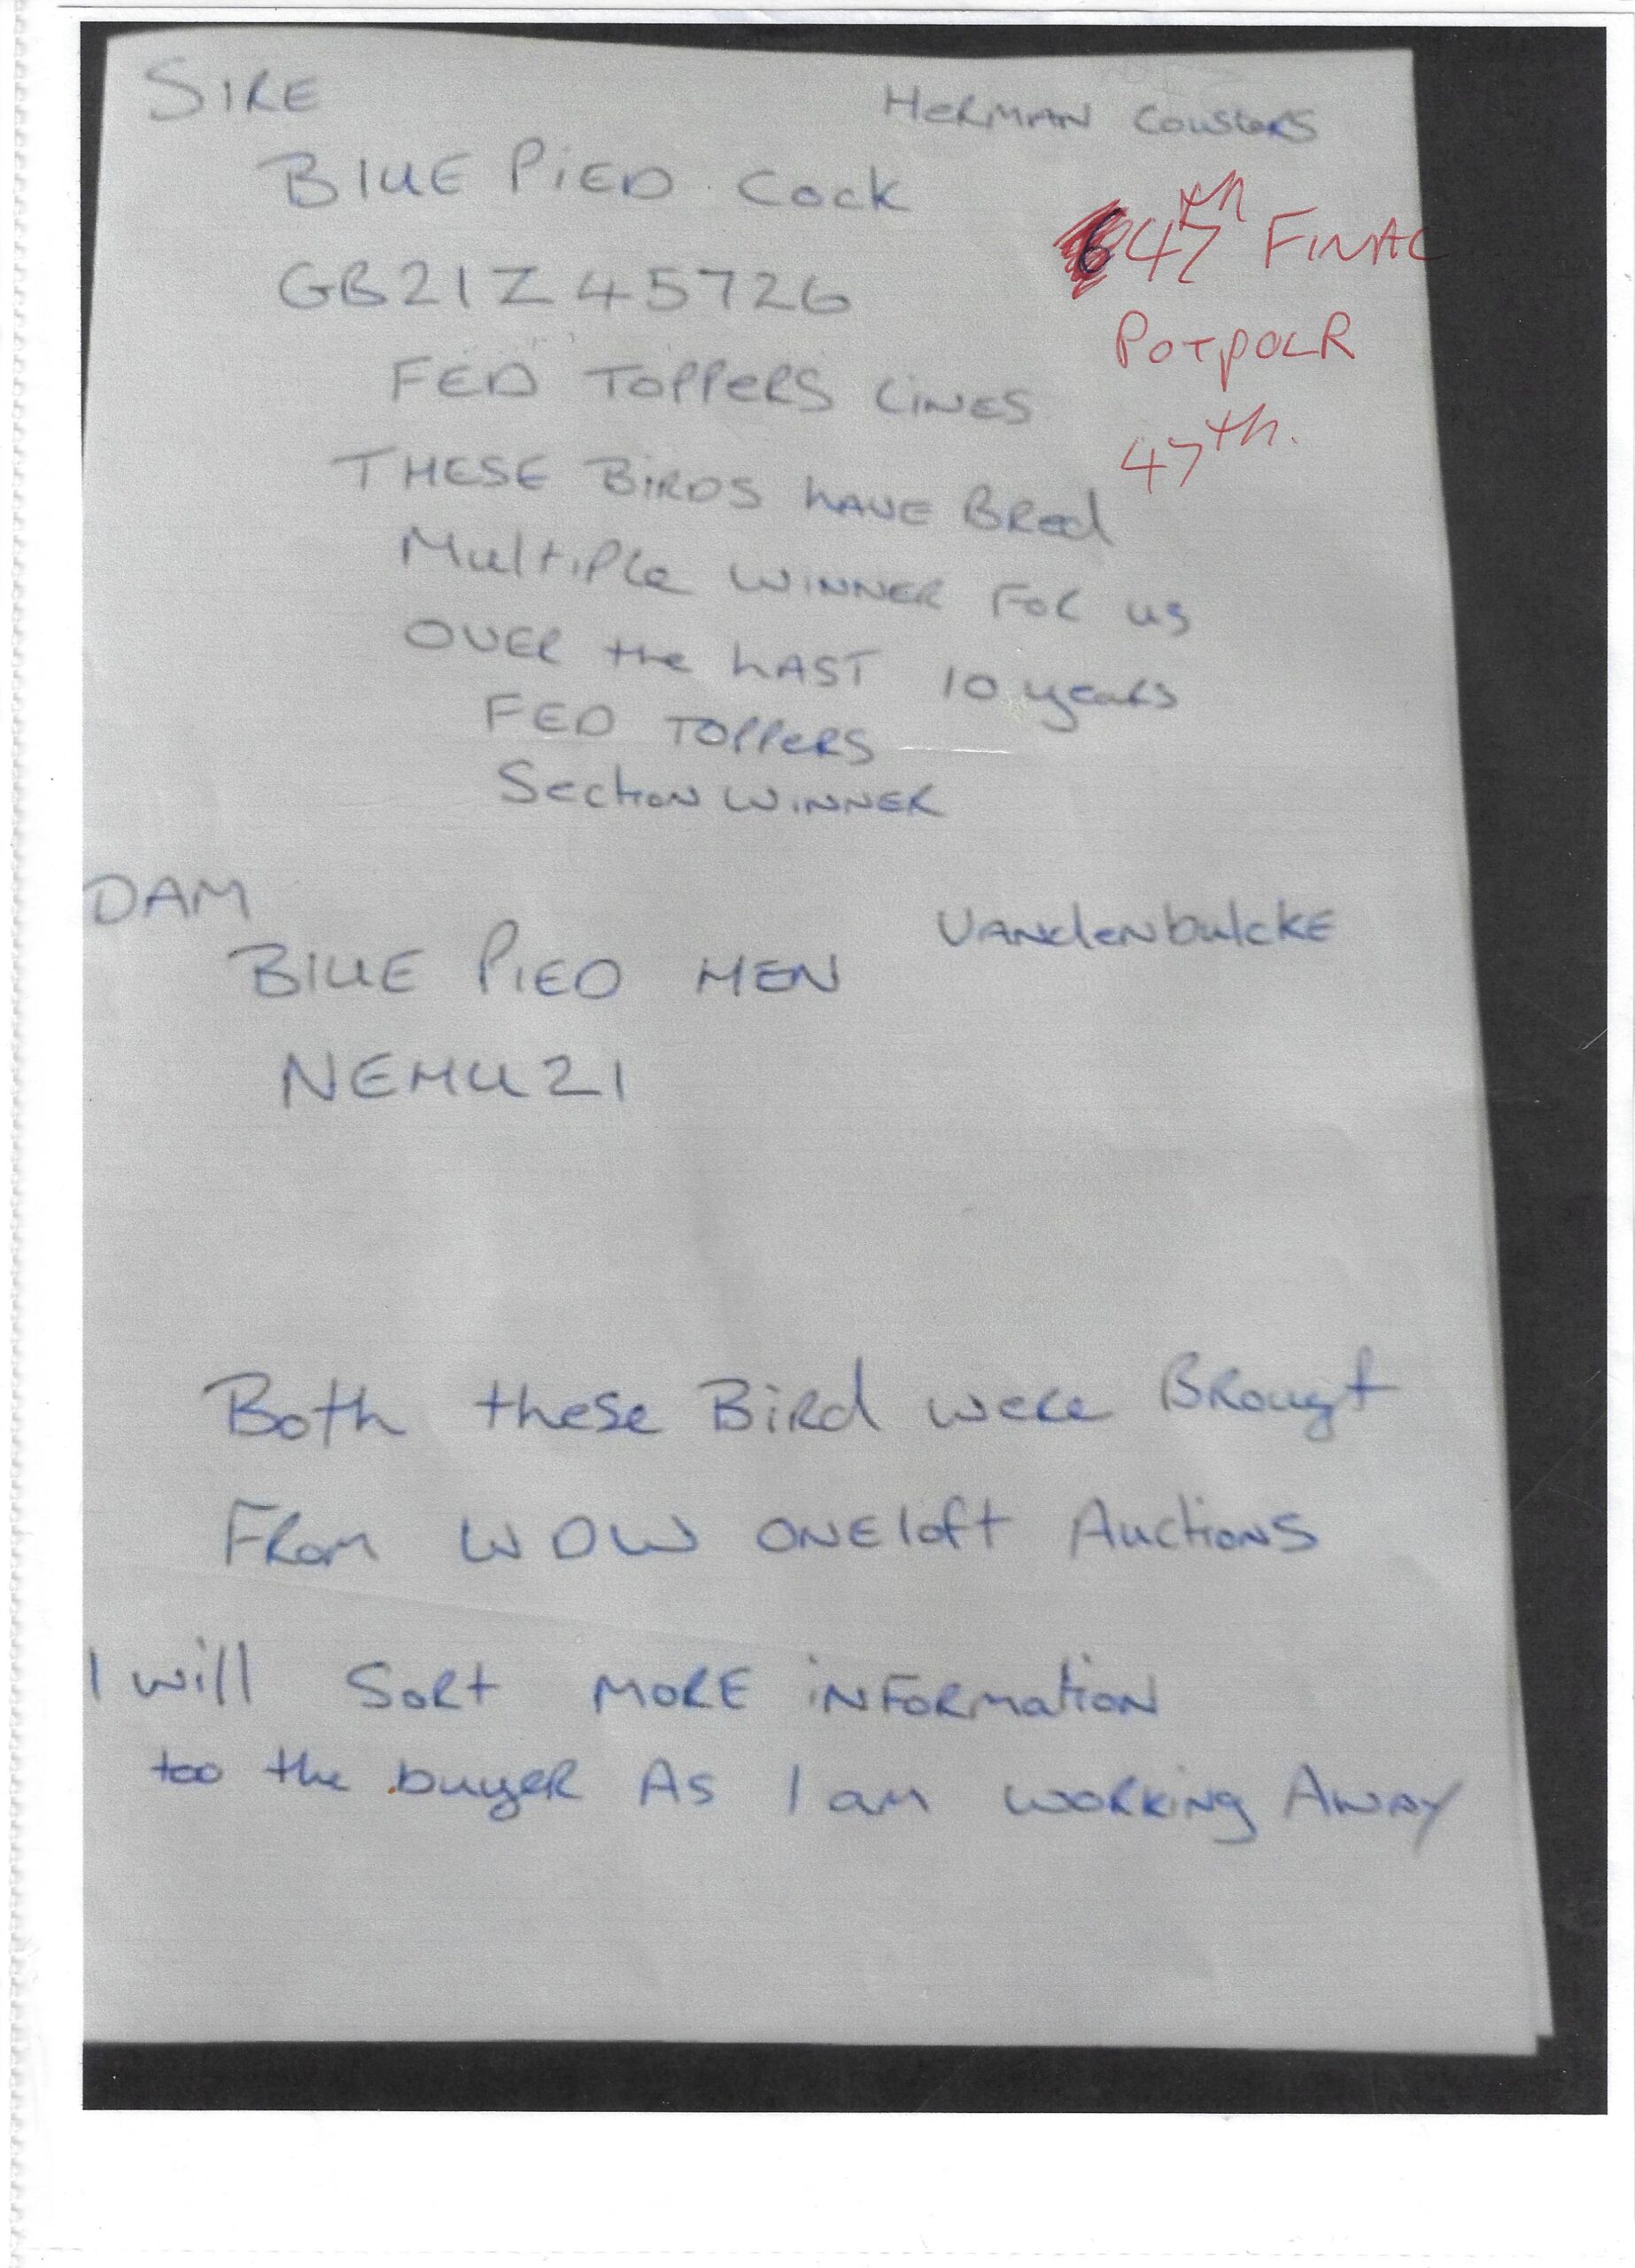 SIRE
HERMAN Cousters
BlUE PiED Cock
GB21Z45726
47th FINAL
POTPOLR
47th.
FED TOPPERS LINES
THESE BiRDS HAVE BRed
MultiPle WINNER FOR us
OVER the LAST 10 years
FED TOPPERS
Section WINNER
DAM
VANdenbulcKE
BlUE PiED HEN
NEHU21
Both these BiRd were BRougt
FRom WOW ONEloft Auctions
I will SoRt MORE iNFORmation
too the buyER AS I am woRKiNg AWAY